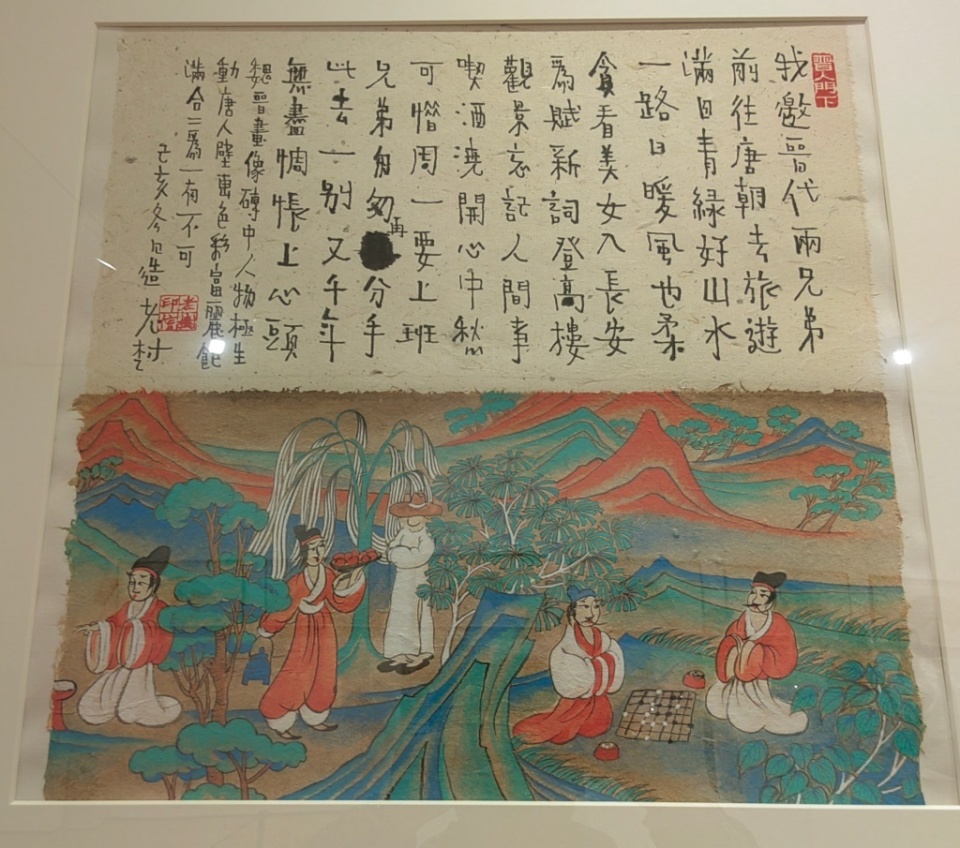 晉人門下
我邀晉代兩兄弟
前往唐朝去旅遊
滿目青緑好山水
一路日暖風也柔
貪看美女入長安
爲賦新詞登高樓
觀景忘記人間事
喫酒澆開心中愁
可惜周一要上班
兄弟匆匆再分手
此去一别又千年
無盡惆悵上心頭
魏晉畫像磚中人物極生
動唐人壁畫色彩富麗飽
滿合二爲一有不可
己亥冬月造老村